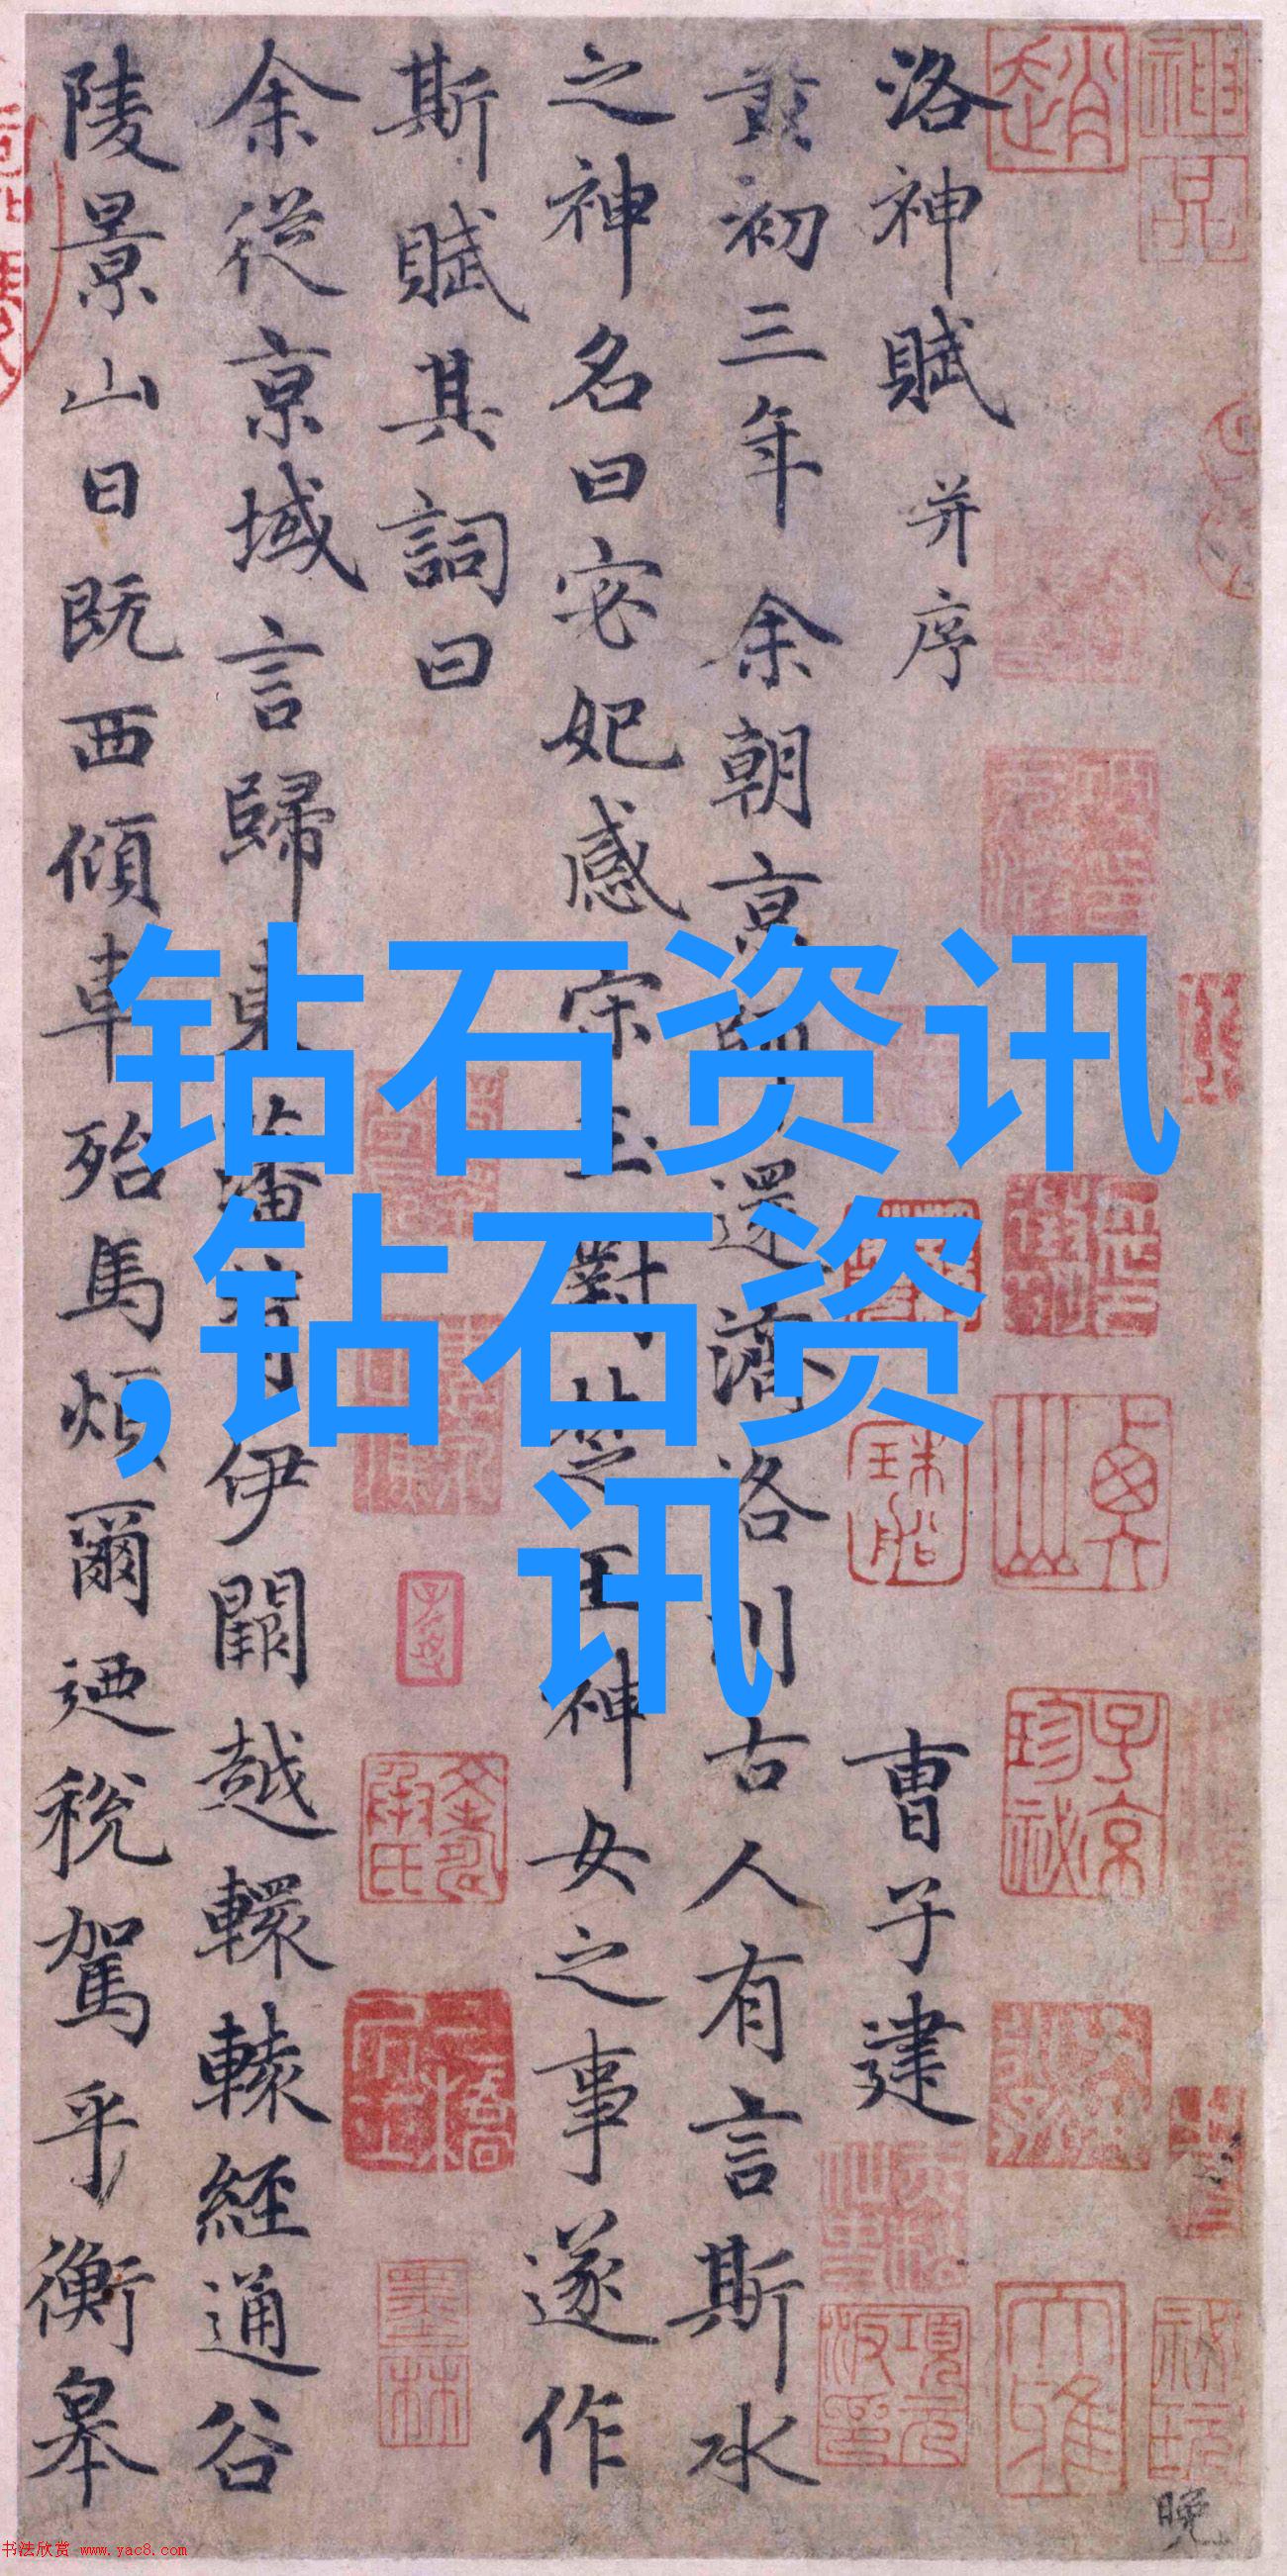 钻石资讯
,钻石资
讯
洛神賦 并序 曹子建
黄初三年余朝京師還濟洛川古人有言斯水
之神名曰宓妃感宋玉對楚王神女之事遂作
斯賦其詞曰
余從京域言歸東藩背伊闕越轘轅經通谷
陵景山日既西傾車殆馬煩爾迺稅駕乎衡皋
晚
书法欣赏 www.yac8.com